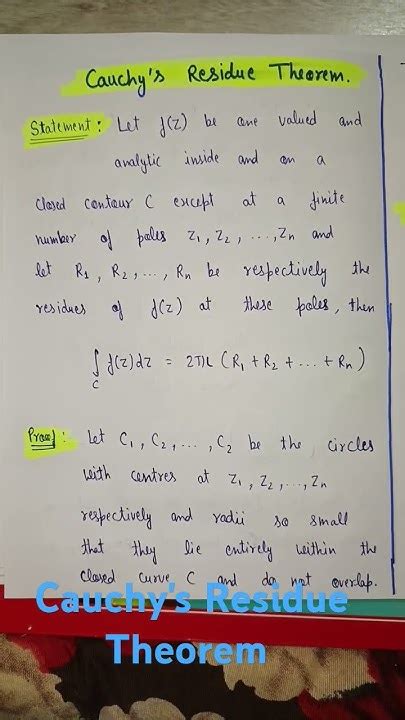 Cauchy's Residue Theorem.
Statement: Let f(z) be one valued and
analytic inside and on a
closed contour C except at a finite
number of poles z₁, z₂, ..., zₙ and
let R₁, R₂, ..., Rₙ be respectively the
residues of f(z) at these poles, then
∫_C f(z)dz = 2πi (R₁ + R₂ + ... + Rₙ)
Proof: Let C₁, C₂, ..., C₂ be the circles
with centres at z₁, z₂, ..., zₙ
respectively and radii so small
that they lie entirely within the
closed curve C and do not overlap.
Cauchy's Residue
Theorem